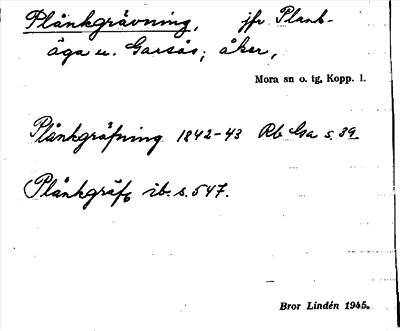 Plånkgrävning, jfr Plank-
äga u. Garsås; åker,
Mora sn o. tg, Kopp. l.
Plånkgräfning 1842-43 Rb Gsa s. 39
(Plånkgräf, ib. s. 547.
Bror Lindén 1945.